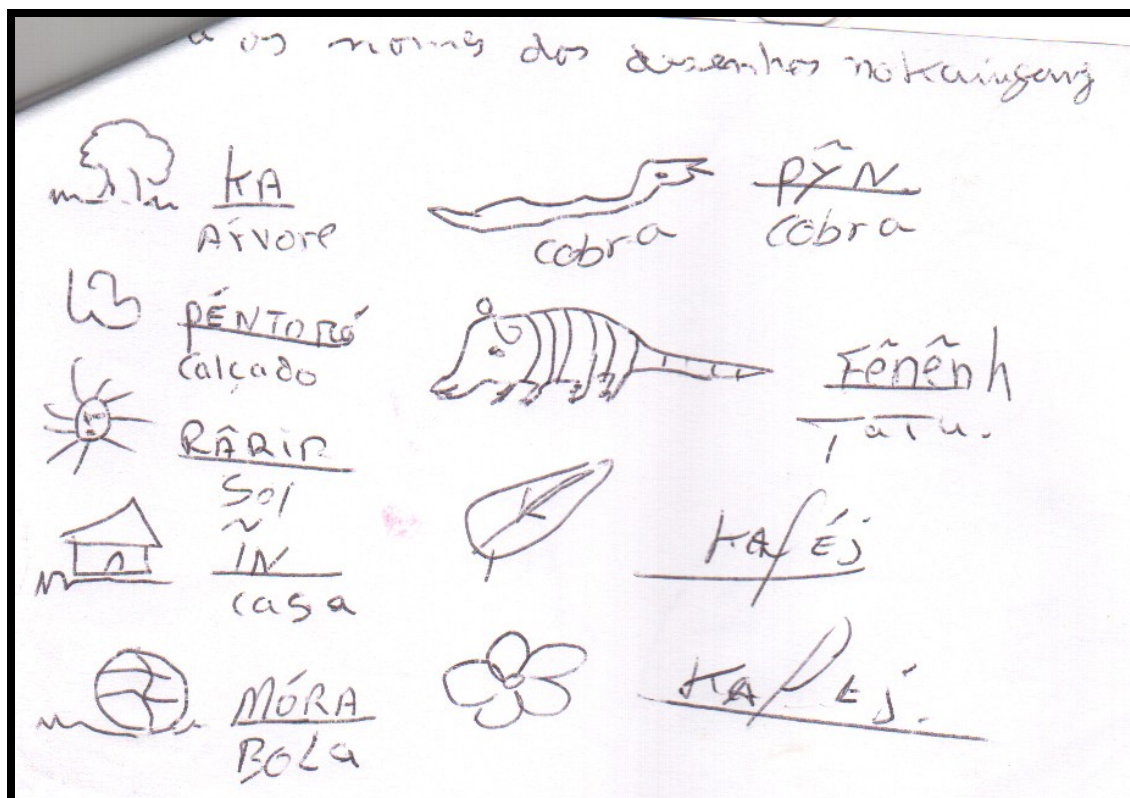 a os nomes dos desenhos no Kaingang
KA
Árvore
PÉNTORÓ
calçado
RÂRIR
Sol
ĨN
casa
MÓRA
BOLa
cobra
PỸN
cobra
Fênênh
TaTu.
KAfÉj
KAfEj.